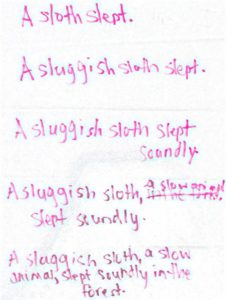 A sloth slept.
A sluggish sloth slept.
A sluggish sloth slept
soundly.
A sluggish sloth, a slow animal
slept soundly.
A sluggish sloth, a slow
animal, slept soundly in the
forest.